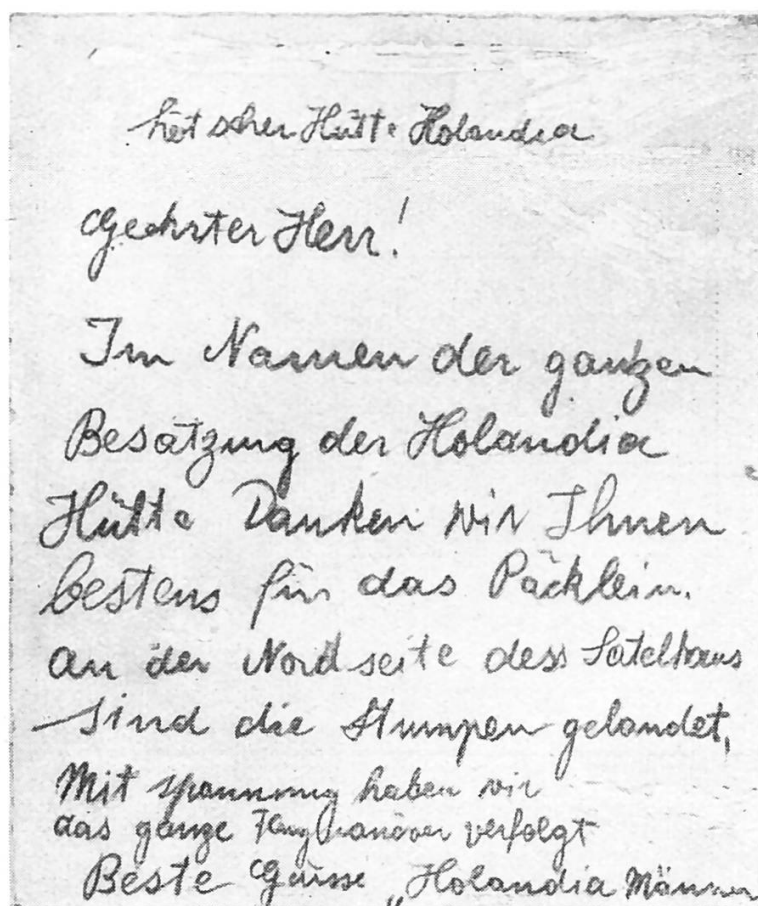 Lötscher Hütte Holandia
Geehrter Herr!
Im Namen der ganzen
Besatzung der Holandia
Hütte Danken wir Ihnen
bestens für das Päcklein.
an der Nordseite dess Satelhorns
Sind die Stumpen gelandet,
Mit spannung haben wir
das ganze verfolgt
Beste Grüsse „Holandia Männer